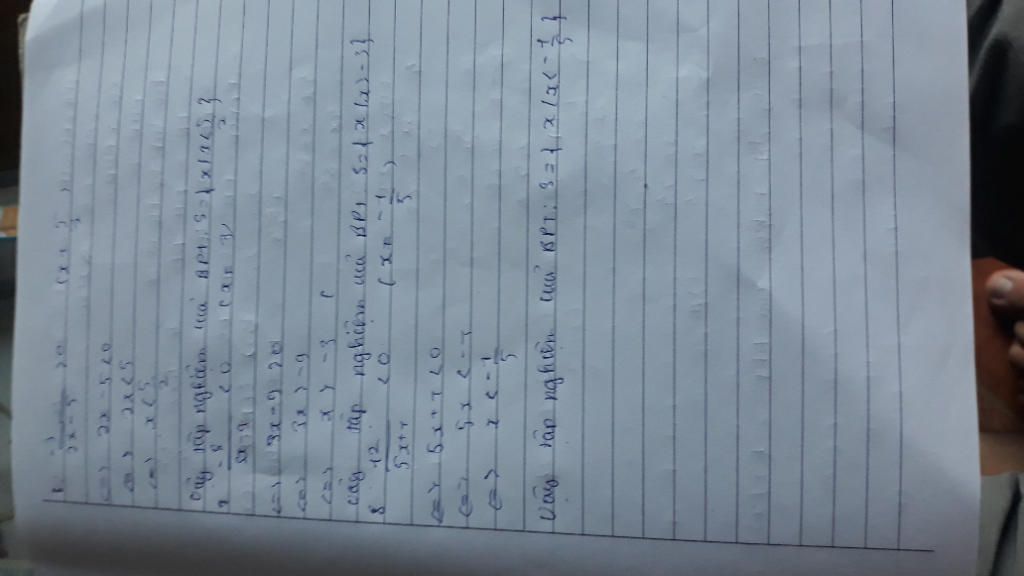 2x - 5 > 0
<=> 2x - 5 < 0
<=> 2x < 5
<=> x < 5/2
Vậy tập nghiệm của BPT: S = { x / x < 5/2 }
-8 / < 0
<=> 3x - 9 > 0
<=> 3x > -9
<=> x > -3
Vậy tập nghiệm của BPT: S = { x / x > -3 }
8 12 / 5x+1 < 0 (x ≠ -1/5)
<=> 5x + 1 < 0
<=> 5x < -1
<=> x < -1/5
Vậy tập nghiệm của BPT: S = { x / x < -1/5 }